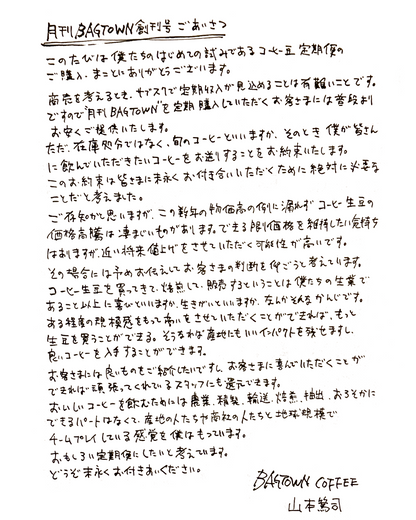 月刊 BAGTOWN 創刊号 ごあいさつ
このたびは僕たちのはじめての試みであるコーヒー豆定期便の
ご購入、まことにありがとうございます。
商売を考えるとき、サブスクで定期収入が見込めることは有難いことです。
ですので"月刊 BAGTOWN"を定期購入していただくお客さまには普段より
お安くご提供いたします。
ただ、在庫処分ではなく、旬のコーヒーといいますか、そのとき僕が皆さん
に飲んでいただきたいコーヒーをお送りすることをお約束いたします。
このお約束は皆さまに末永くお付き合いいただくために絶対に必要な
ことだと考えました。
ご存知かと思いますが、この数年の物価高の例に漏れずコーヒー生豆の
価格高騰は凄まじいものがあります。できる限り価格を維持したい気持ち
はありますが、近い将来値上げをさせていただく可能性が高いです。
その場合には予めお伝えしてお客さまの判断を仰ごうと考えています。
コーヒー生豆を買ってきて、焙煎して、販売するということは僕たちの生業で
あること以上に喜びといいますか、生きがいといいますか、なんかそんなかんじです。
ある程度の規模感をもって商いをさせていただくことができれば、もっと
生豆を買うことができる。そうなれば産地にもいいインパクトを残せますし、
良いコーヒーを入手することができます。
お客さまには良いものをご紹介したいですし、お客さまに喜んでいただくことが
できれば頑張ってくれているスタッフにも還元できます。
おいしいコーヒーを飲むためには農業、精製、輸送、焙煎、抽出、おろそかに
できるパートはなくて、産地の人たちや商社の人たちと地球規模で
チームプレイしている感覚を僕はもっています。
おもしろい定期便にしたいと考えています。
どうぞ末永くお付きあいください。
BAGTOWN COFFEE
山本篤司